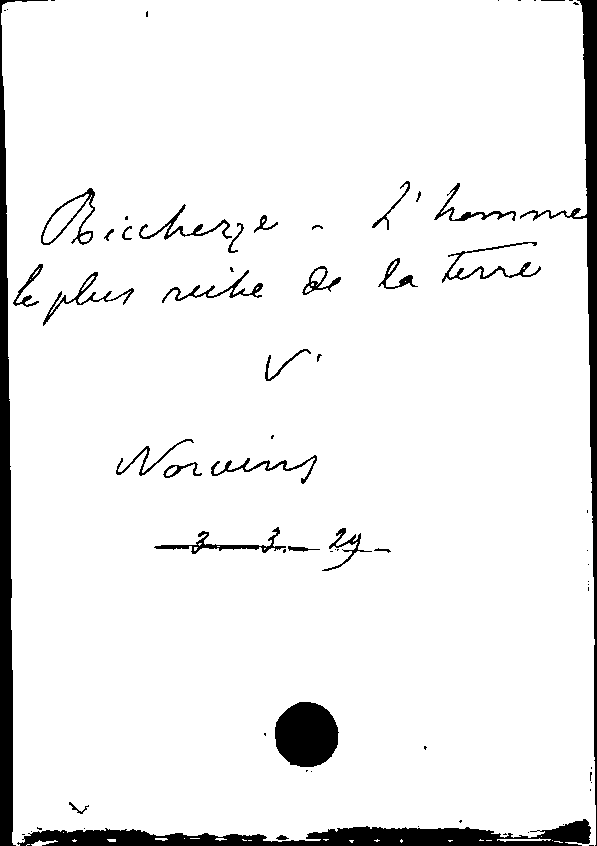 Biccherze - L'homme
le plus riche de la terre
V.
Norvins
3. 3. 29